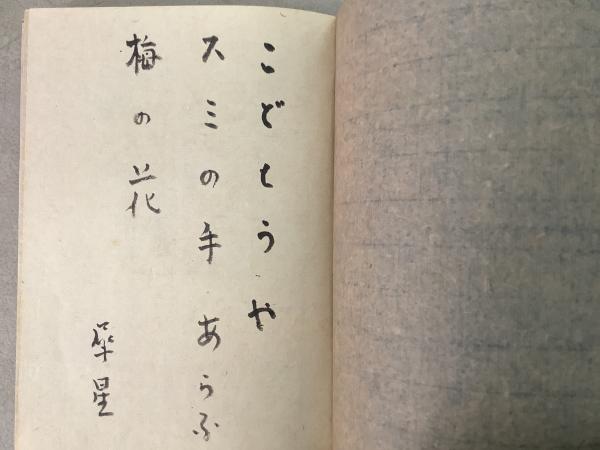 こどもらや
スミの手あらふ
梅の花
犀星